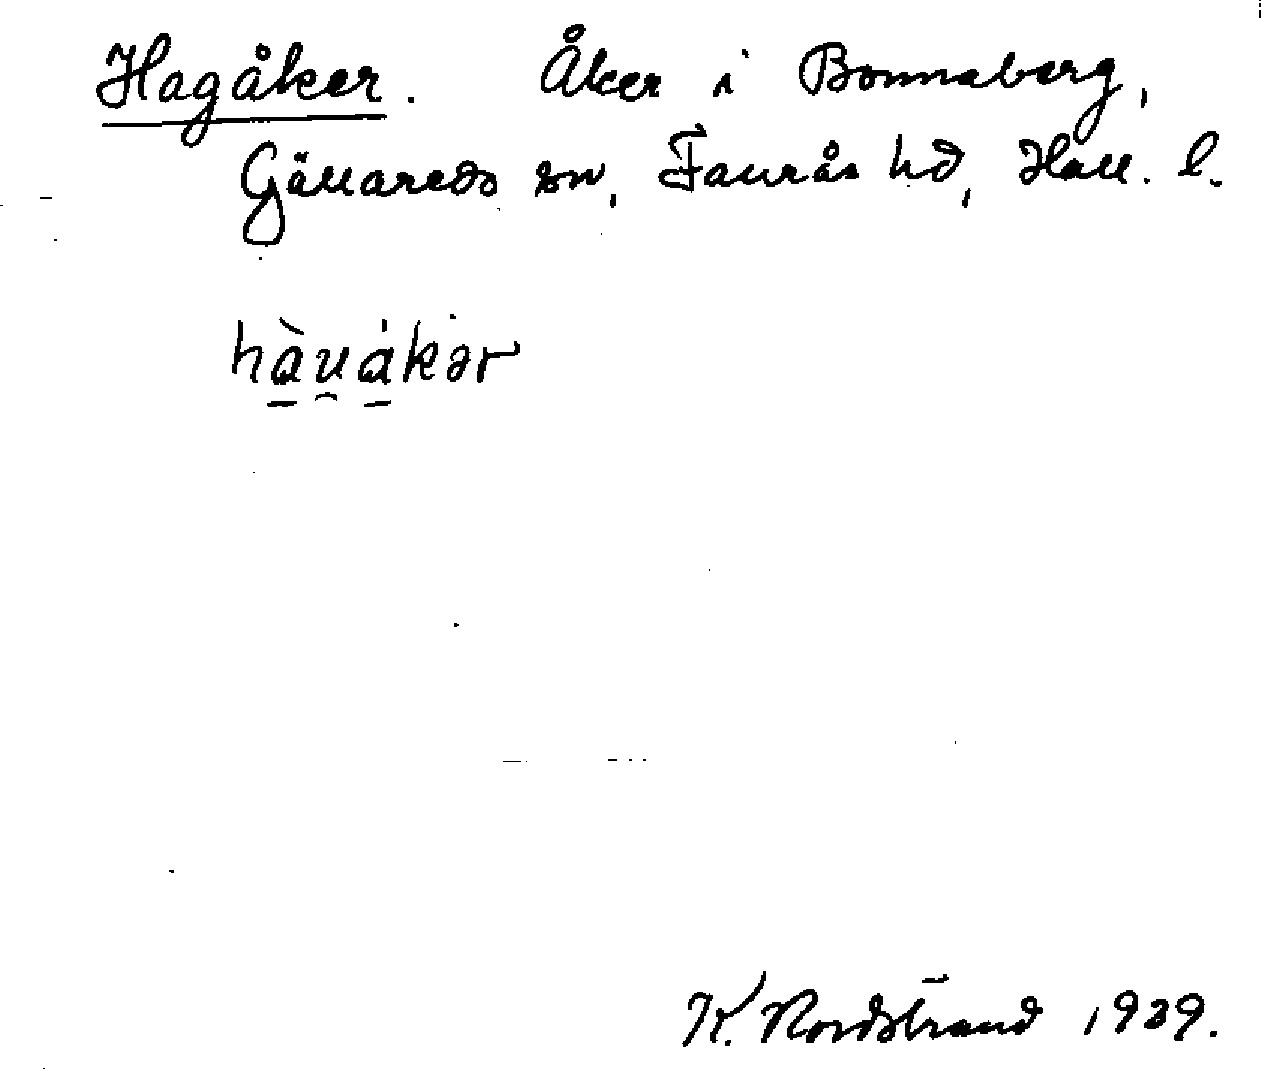 Hagåker. Åker i Bonnaberg,
Gällareds sn, Faurås hd, Hall. l.
hàu̯ákər
K. Nordstrand 1939.